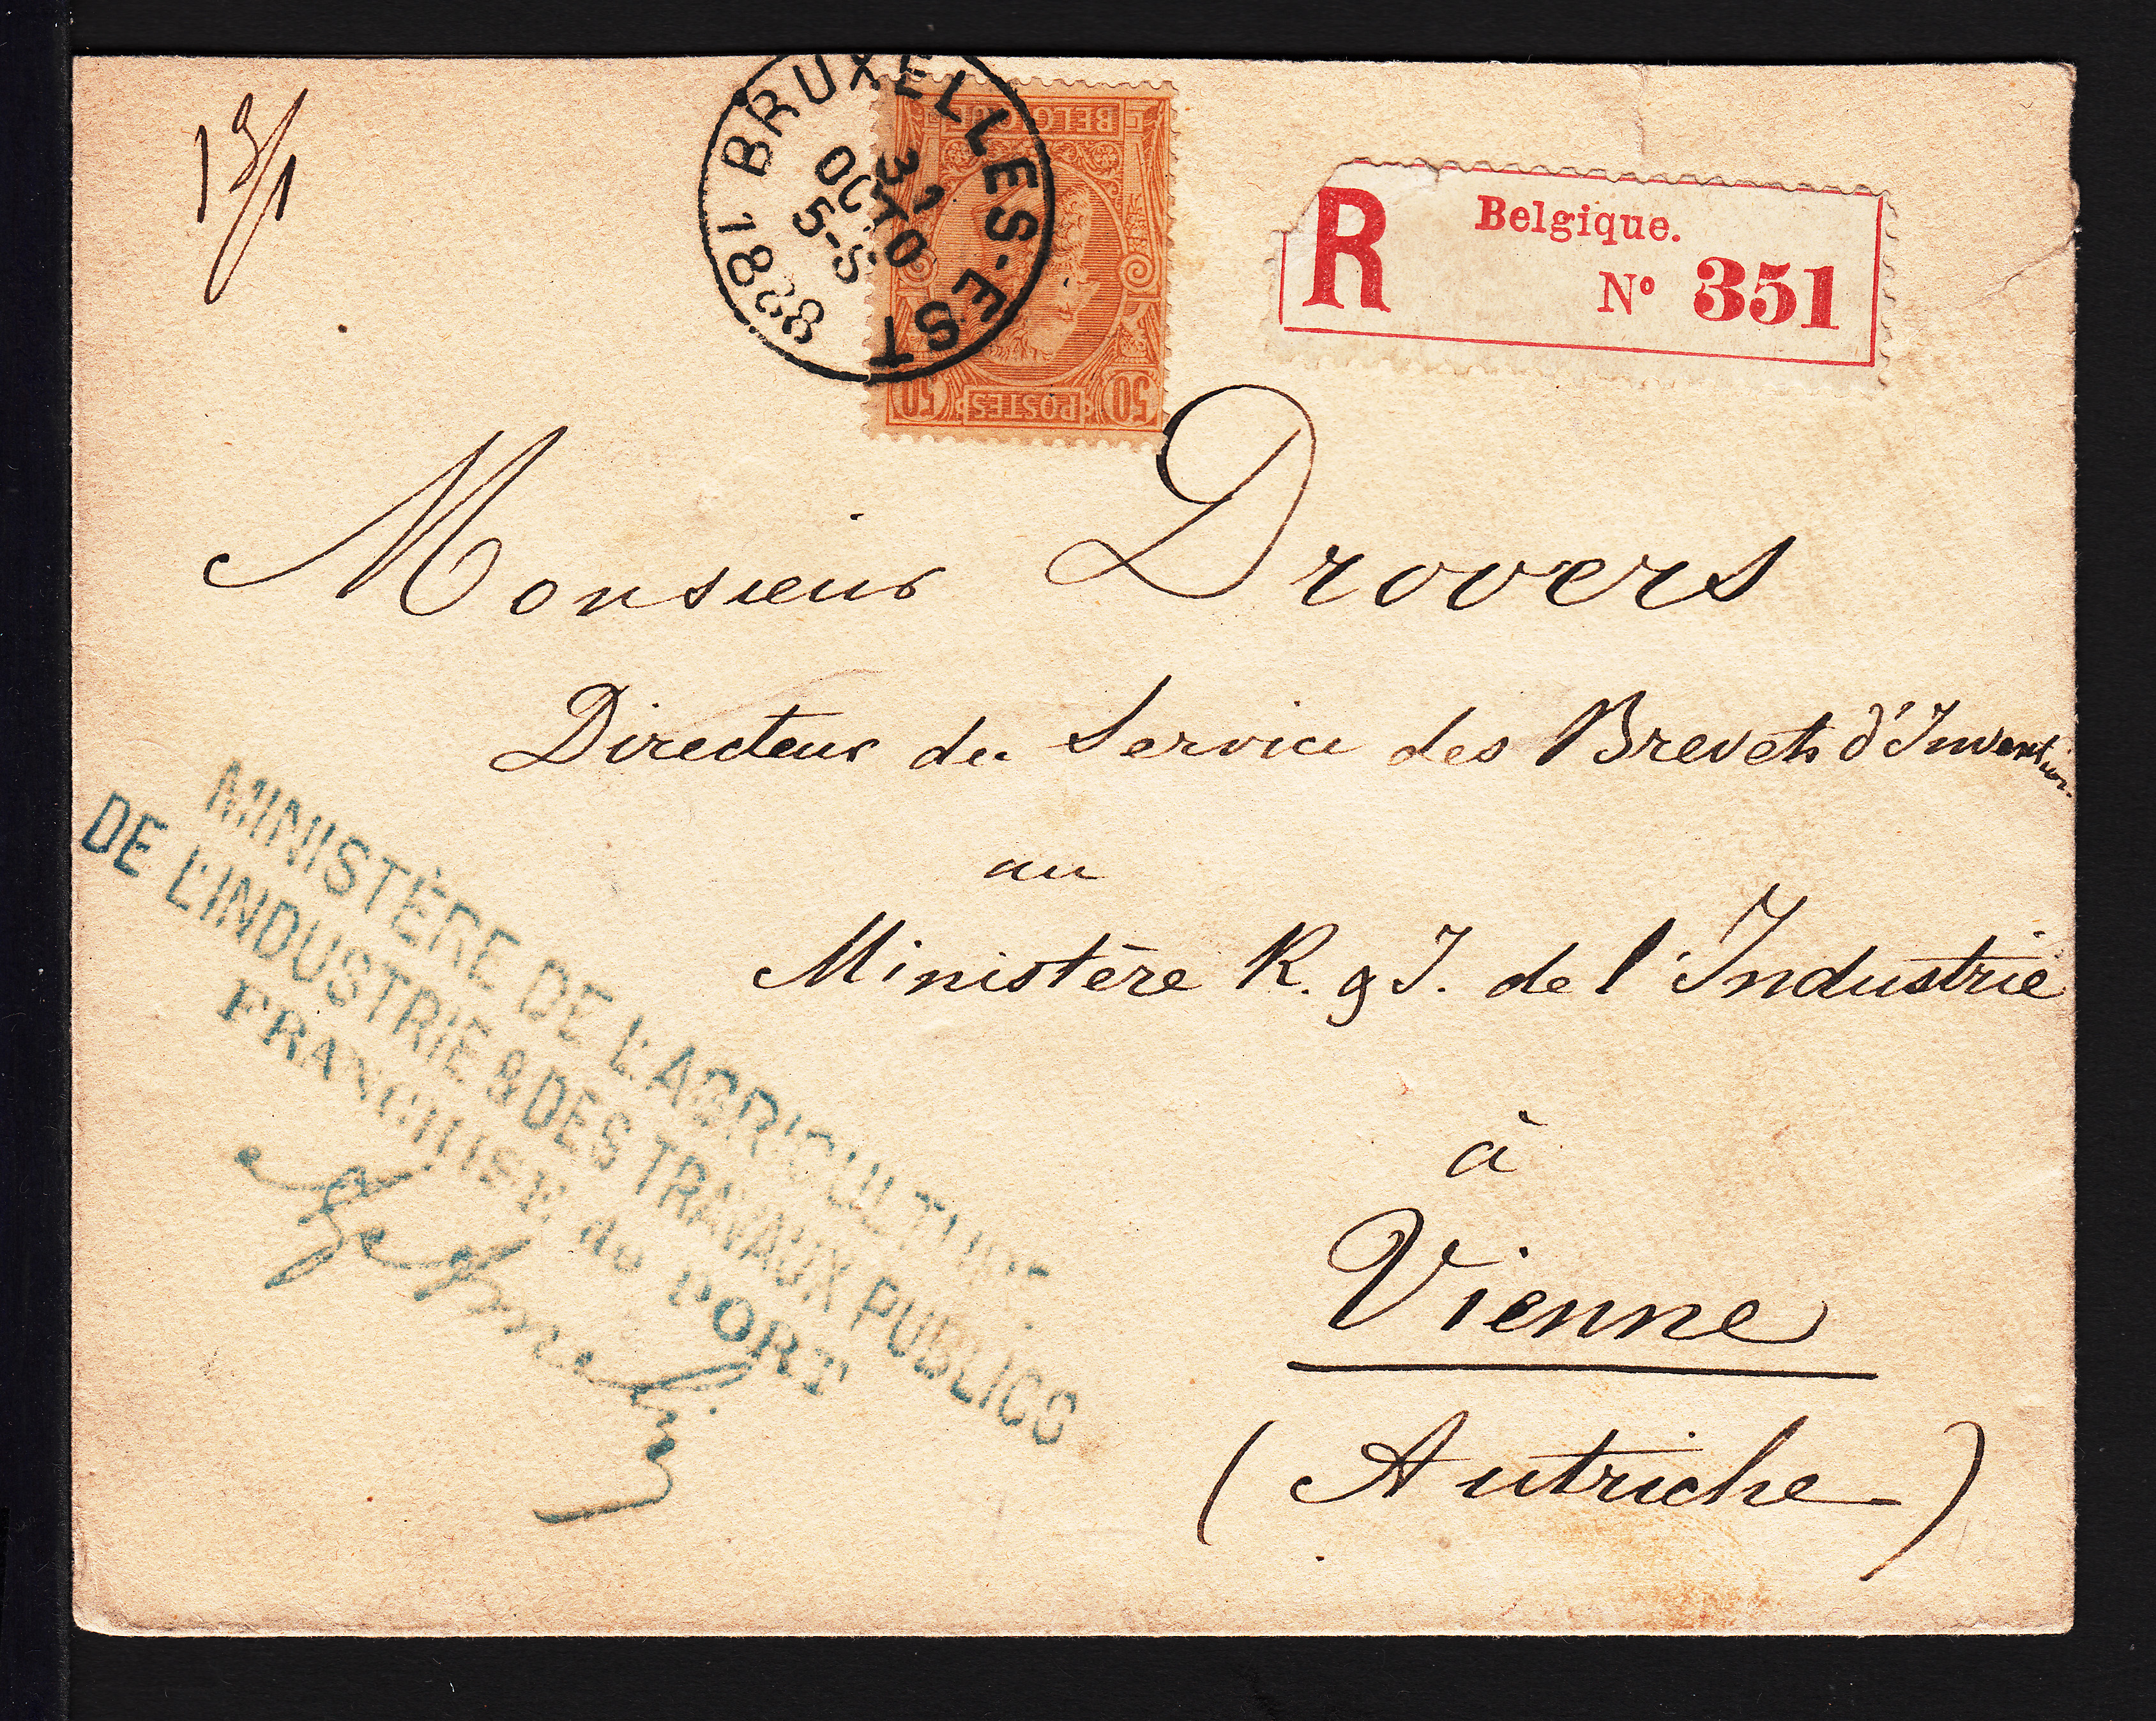 BRUXELLES-EST
OCTO
5-S
1888
BELGIQUE
50 POSTES 50
R Belgique.
Nº 351
Monsieur Drovers
Directeur du Service des Brevets d'Invention
au
Ministère R. & I. de l'Industrie
à
Vienne
(Autriche)
MINISTÈRE DE L'AGRICULTURE
DE L'INDUSTRIE & DES TRAVAUX PUBLICS
FRANCHISE DE PORT